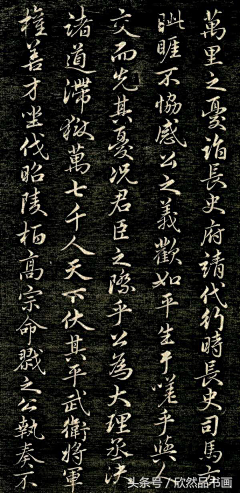 萬里之憂詣長史府請代行時長史司馬方
眦睚不恊感公之義歡如平生于嗟乎與人
交而先其憂況君臣之際乎公為大理丞決
諸道滯獄萬七千人天下伏其平武衛將軍
權善才坐伐昭陵栢高宗命戮之公執奏不
头条号/欣然品书画